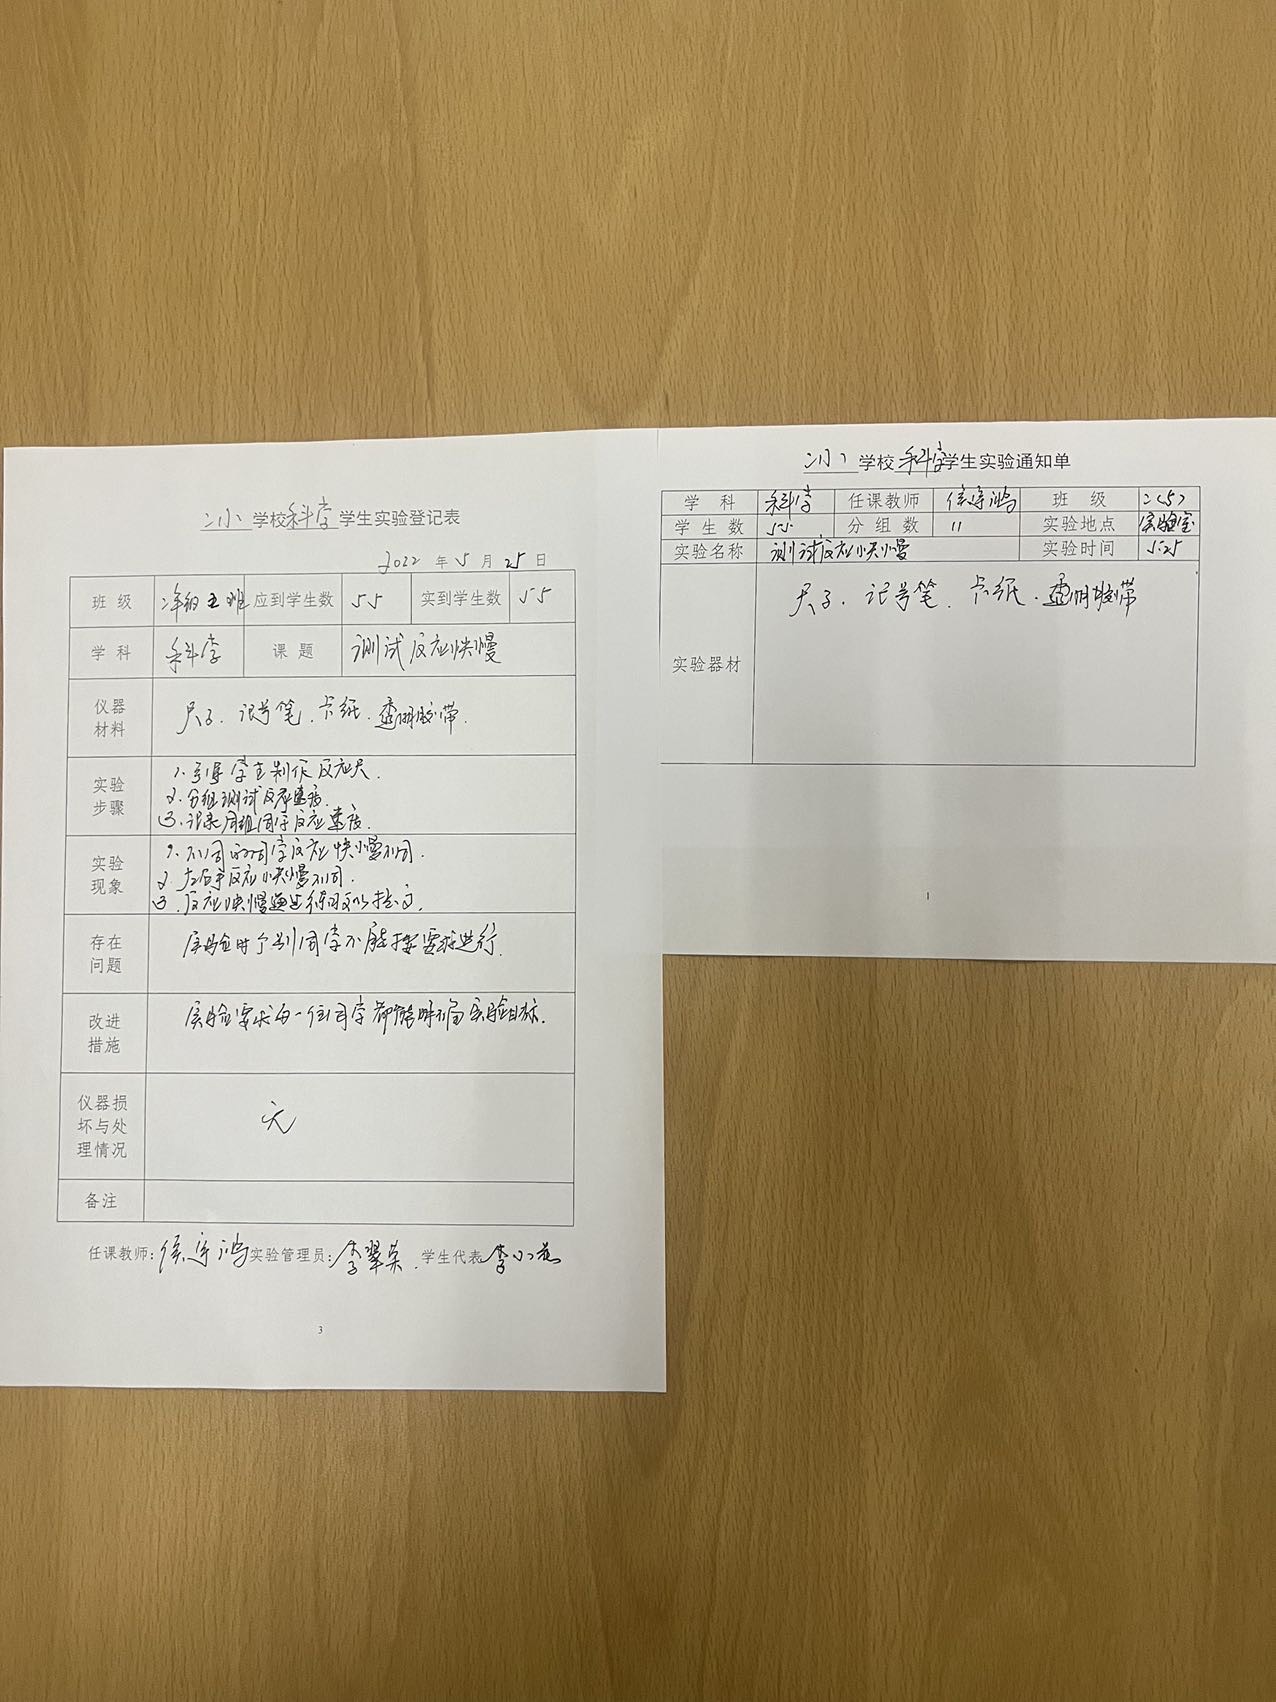 二小学校科学学生实验登记表
2022年5月25日
班级 二年级五班 应到学生数 55 实到学生数 55
学科 科学 课题 测试反应快慢
仪器材料 尺子、记号笔、卡纸、透明胶带.
实验步骤 1.引导学生制作反应尺.
2.分组测试反应速度.
3.记录同组同学反应速度.
实验现象 1.不同的同学反应快慢不同.
2.左右手反应快慢不同.
3.反应快慢通过练习可以提高.
存在问题 实验时个别同学不能按要求进行.
改进措施 实验要求每一位同学都能明确实验目标.
仪器损坏与处理情况 无
备注
任课教师:侯宇鸿 实验管理员:李翠荣. 学生代表
3
二小学校科学学生实验通知单
学科 科学 任课教师 侯宇鸿 班级 二(5)
学生数 55 分组数 11 实验地点 实验室
实验名称 测试反应快慢 实验时间 5.25
实验器材 尺子、记号笔、卡纸、透明胶带
1